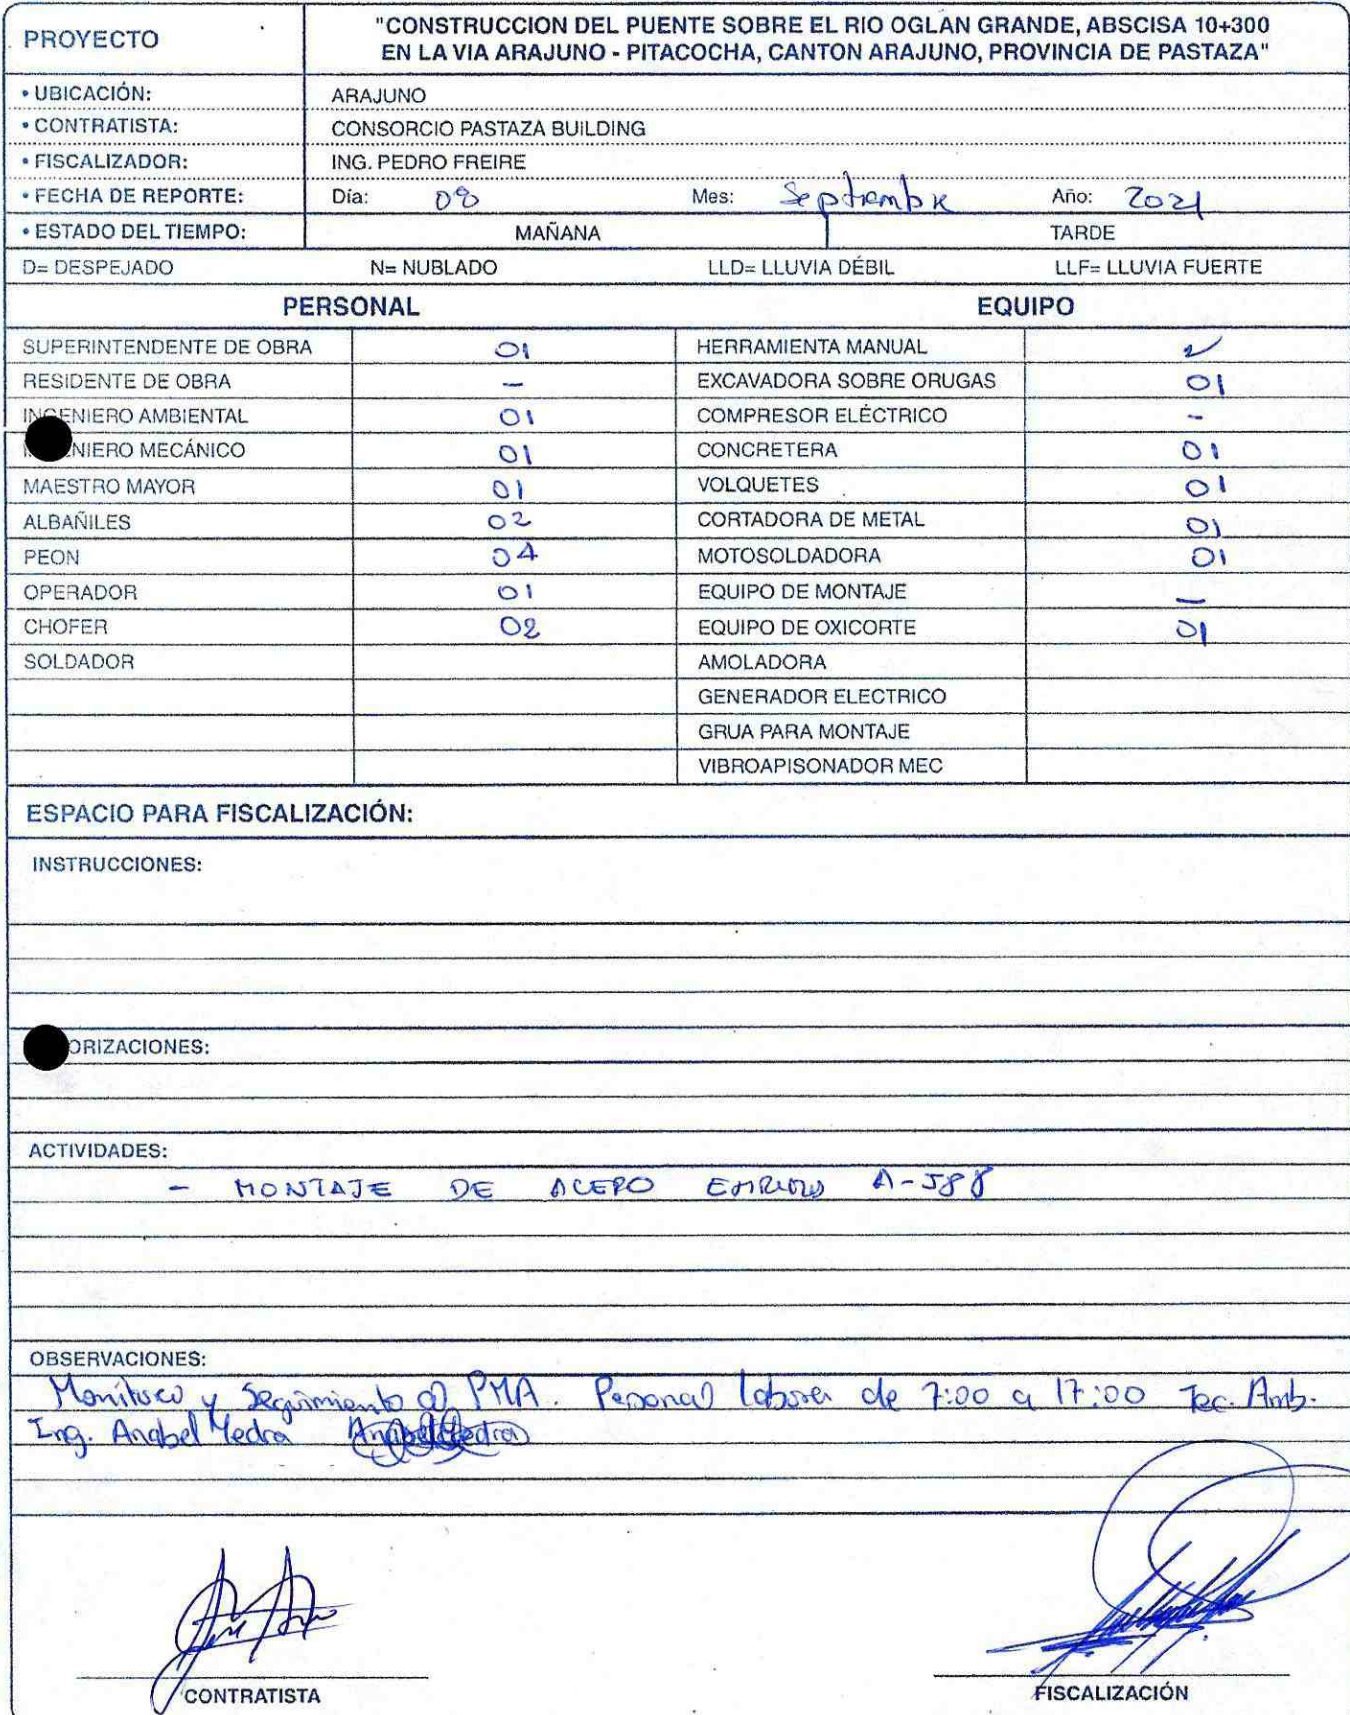 PROYECTO
"CONSTRUCCION DEL PUENTE SOBRE EL RIO OGLAN GRANDE, ABSCISA 10+300
EN LA VIA ARAJUNO - PITACOCHA, CANTON ARAJUNO, PROVINCIA DE PASTAZA"
• UBICACIÓN: ARAJUNO
• CONTRATISTA: CONSORCIO PASTAZA BUILDING
• FISCALIZADOR: ING. PEDRO FREIRE
• FECHA DE REPORTE: Día: 08 Mes: Septiembre Año: 2021
• ESTADO DEL TIEMPO: MAÑANA TARDE
D= DESPEJADO N= NUBLADO LLD= LLUVIA DÉBIL LLF= LLUVIA FUERTE
PERSONAL EQUIPO
SUPERINTENDENTE DE OBRA 01 HERRAMIENTA MANUAL ✓
RESIDENTE DE OBRA - EXCAVADORA SOBRE ORUGAS 01
INGENIERO AMBIENTAL 01 COMPRESOR ELÉCTRICO -
NIERO MECÁNICO 01 CONCRETERA 01
MAESTRO MAYOR 01 VOLQUETES 01
ALBAÑILES 02 CORTADORA DE METAL 01
PEON 04 MOTOSOLDADORA 01
OPERADOR 01 EQUIPO DE MONTAJE -
CHOFER 02 EQUIPO DE OXICORTE 01
SOLDADOR AMOLADORA
GENERADOR ELECTRICO
GRUA PARA MONTAJE
VIBROAPISONADOR MEC
ESPACIO PARA FISCALIZACIÓN:
INSTRUCCIONES:
ORIZACIONES:
ACTIVIDADES:
- MONTAJE DE ACERO A-588
OBSERVACIONES:
Monitoreo y Seguimiento al PMA. Personal labora de 7:00 a 17:00 Tec. Amb.
Ing. Anabel Yedra
CONTRATISTA FISCALIZACIÓN